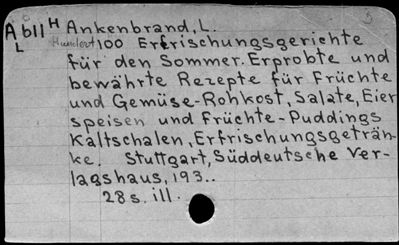 5
A b11 H Ankenbrand, L.
L Hundert 100 Erfrischungsgerichte
für den Sommer. Erprobte und
bewährte Rezepte für Früchte
und Gemüse-Rohkost, Salate, Eier
speisen und Früchte-Puddings
Kaltschalen, Erfrischungsgeträn-
ke. Stuttgart, Süddeutsche Ver-
lagshaus, 193..
28 s. ill.